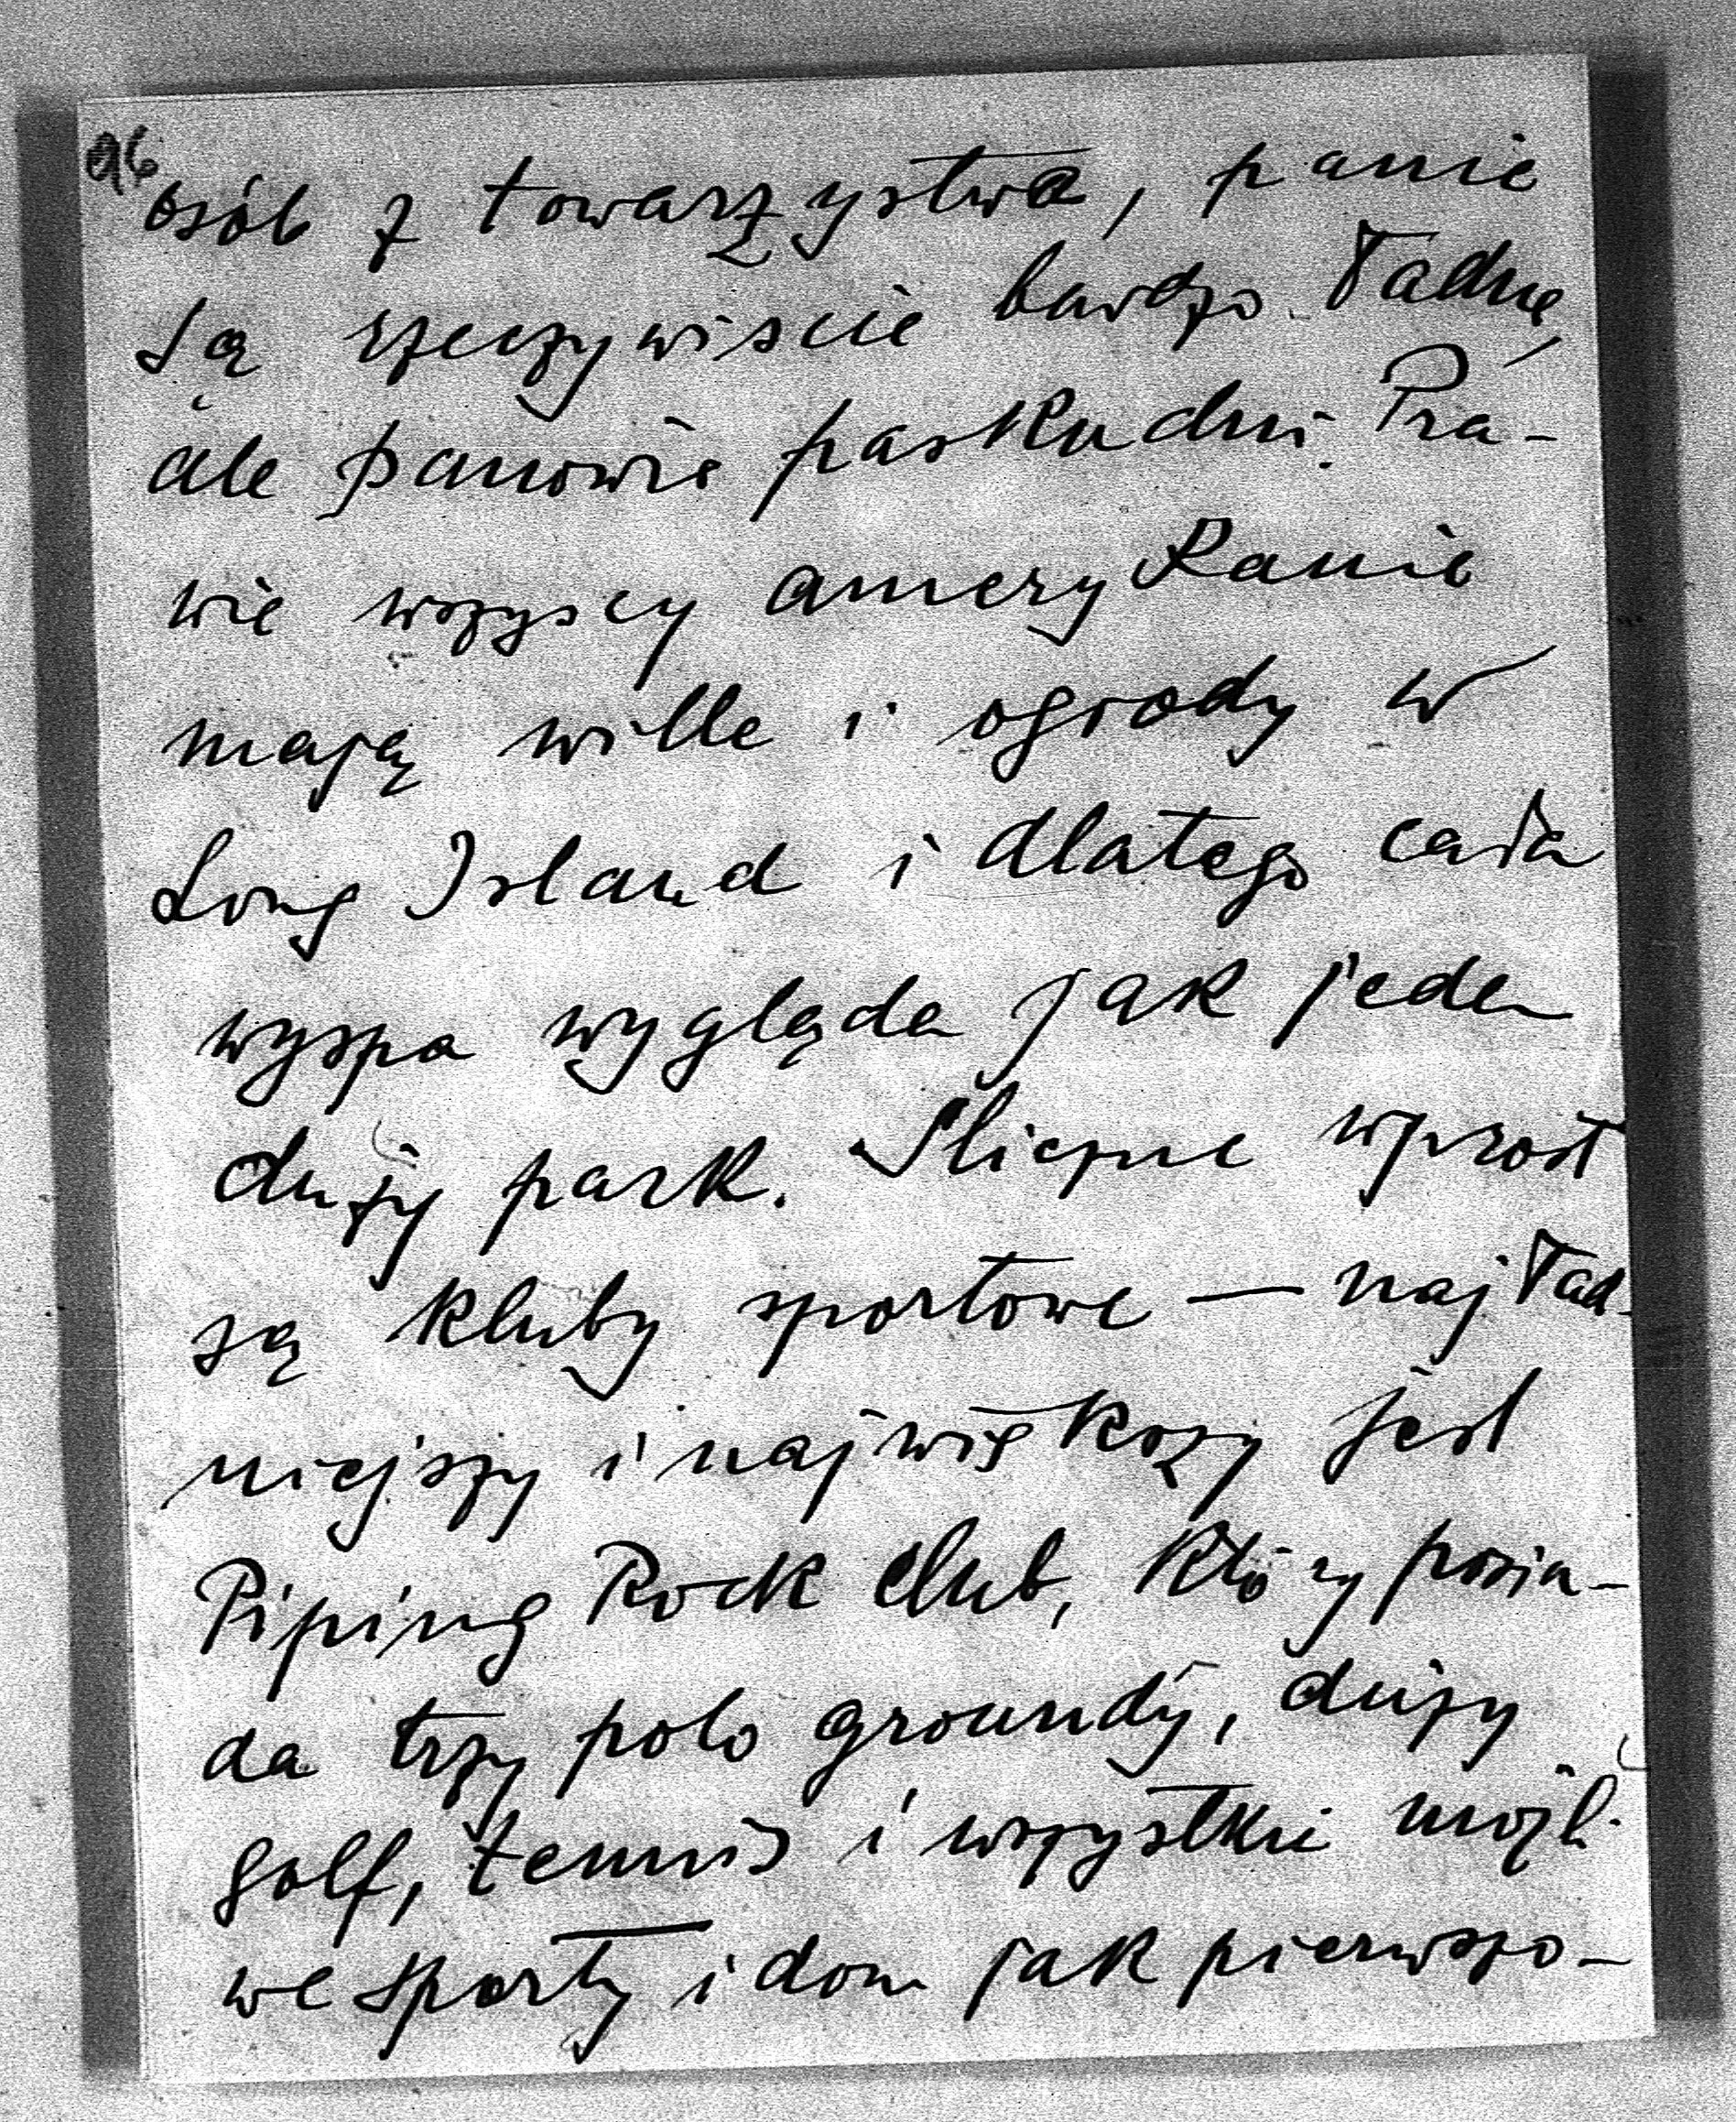 96
osób z towarzystwa, panie
są rzeczywiscie bardzo ładne,
ale panowie paskudni. Pra-
wie wszyscy amerykanie
mają wille i ogrody w
Long Island i dlatego cała
wyspa wygląda jak jeden
duży park. Śliczne wprost
są kluby sportowe — najład-
niejszy i największy jest
Piping Rock Club, który posia-
da trzy polo groundy, duży
golf, tennis i wszystkie możli-
we sporty i dom jak pierwszo-